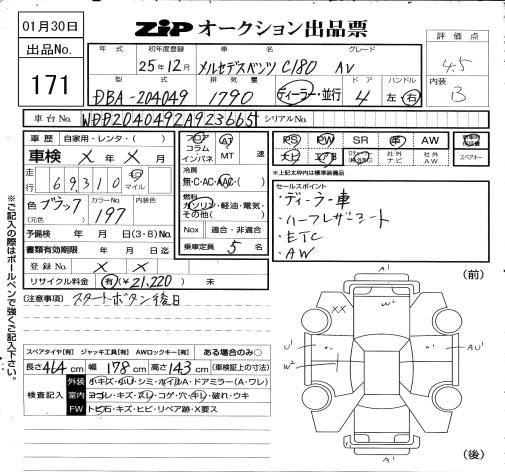 01月30日
出品No.
171
ZIP オークション出品票
評価点
4.5
内装
B
年式 初年度登録 車名 グレード
25年12月 メルセデスベンツ C180 AV
型式 排気量 ドア ハンドル
DBA-204049 1790 ディーラー・並行 4 左・右
車台No. WDD2040492A923665 シリアルNo.
車歴 自家用・レンタ・( )
車検 X年X月
走行 69,310 キロ マイル
色 ブラック (元色) カラーNo. 197 内装色
予備検 年 月 日(3・8)No.
書類有効期限 年 月 日迄
登録No. X X
リサイクル料金 有(¥21,220) 未
フロア コラム インパネ AT MT 速
冷房
無・C・AC・AAC・( )
燃料
ガソリン・軽油・電気・その他( )
Nox 適合・非適合
乗車定員 5名
PS PW SR 革 AW
ナビ エアB 社外ナビ 社外AW
スペアキー
※上記太枠内は標準装備品
セールスポイント
・ディーラー車
・ハーフレザーシート
・ETC
・AW
(注意事項) スタートボタン後日
※ご記入の際はボールペンで強くご記入下さい。
スペアタイヤ[有] ジャッキ工具[有] AWロックキー[有] ある場合のみ○
長さ464cm 幅178cm 高さ143cm (車検証上の寸法)
検査記入
外装 小キズ・小U・シミ・ホイルA・ドアミラー(A・ワレ)
室内 ヨゴレ・キズ・スレ・コゲ・穴・キレ・破れ・ウキ
FW トビ石・キズ・ヒビ・リペア跡・X要ス
(前)
A'
W²
XX
U'
W²
AU'
A'
(後)